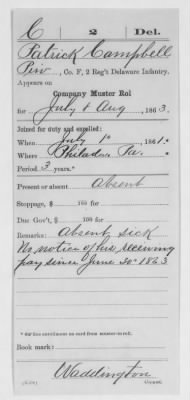 C | 2 | Del.
Patrick Campbell
Priv, Co. F, 2 Reg't Delaware Infantry.
Appears on
Company Muster Roll
for July & Aug, 1863.
Joined for duty and enrolled:
When July 1, 1861.
Where Philada Pa.
Period 3 years.*
Present or absent Absent
Stoppage, $ 100 for
Due Gov't, $ 100 for
Remarks: Absent sick
No notice of his receiving
pay since June 30" 1863
* See enrollment on card from muster-in roll.
Book mark:
Waddington
Copyist.